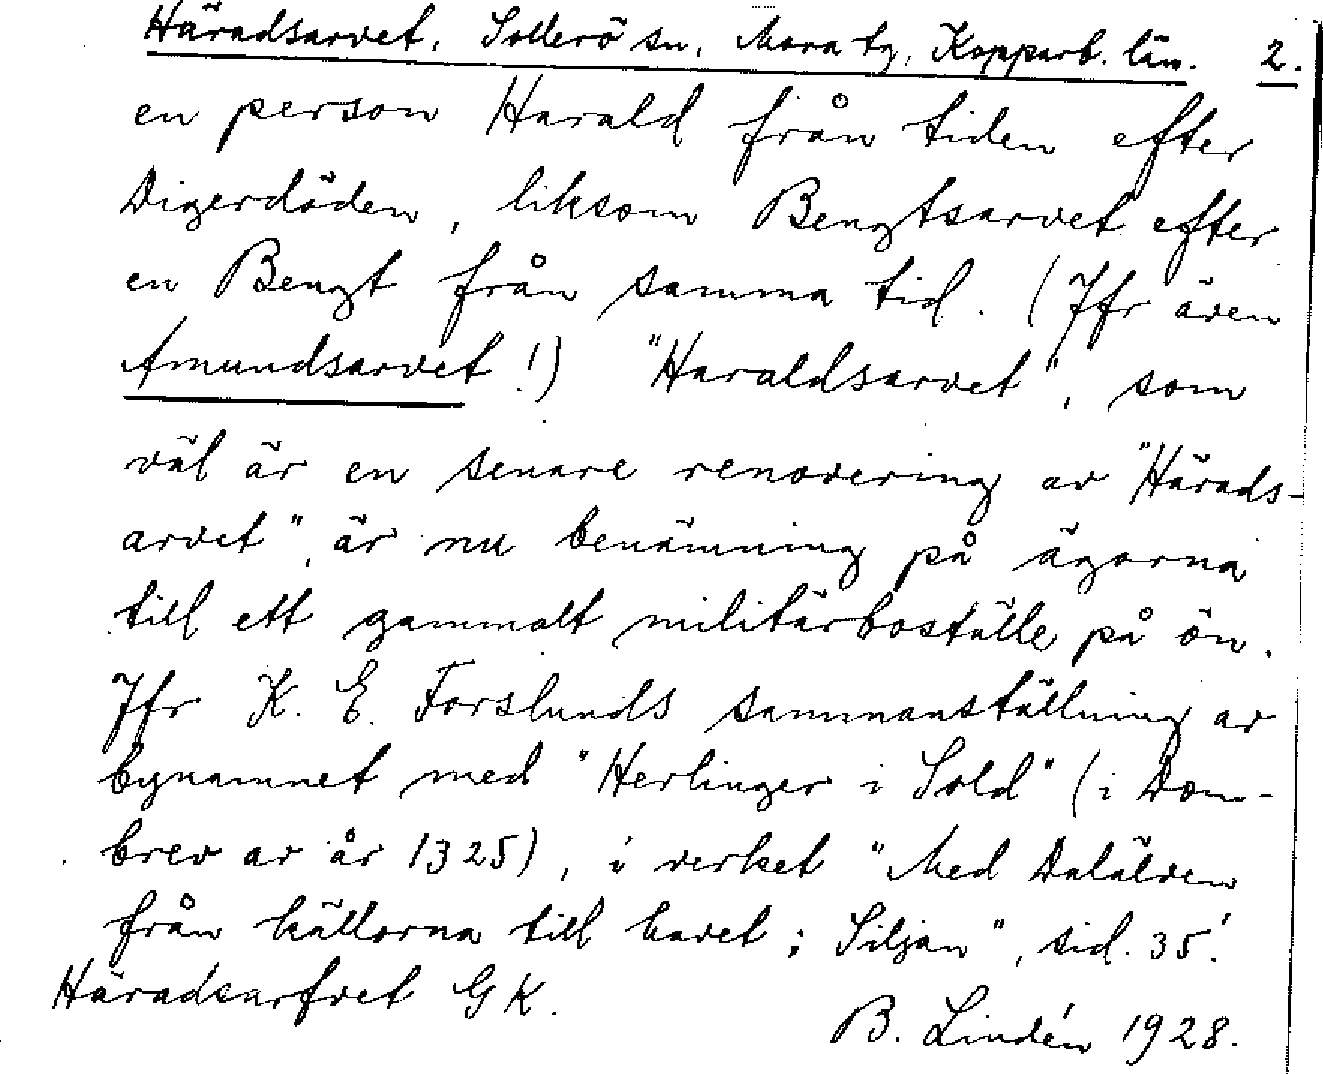 Häradsarvet, Sollerö sn, Mora tg, Kopparb. län. 2.
en person Harald från tiden efter
Digerdöden, liksom Bengtsarvet efter
en Bengt från samma tid. (Jfr även
Amundsarvet!) "Haraldsarvet", som
väl är en senare renovering av "Härads-
arvet", är nu benämning på ägorna
till ett gammalt militärboställe på ön.
Jfr K. E. Forslunds sammanställning av
bynamnet med "Herlinger i Sold" (i Dom-
brev av år 1325), i verket "Med Dalälven
från källorna till havet; Siljan", sid. 35!
Häradsarfvet GK.
B. Lindén 1928.